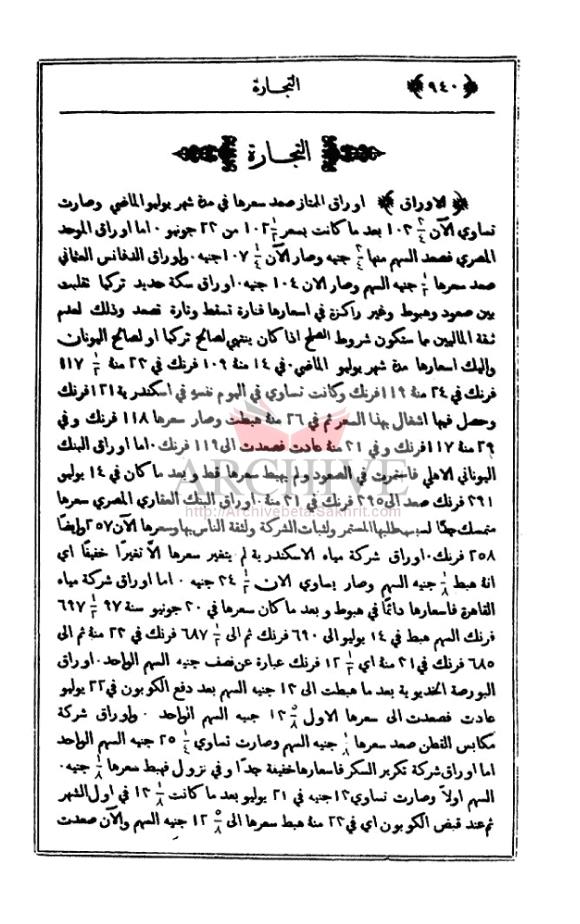 ﴿٩٤٠﴾ التجارة
التجارة
﴿الاوراق﴾ اوراق الممتاز صعد سعرها في مدة شهر يوليو الماضي وصارت
تساوي الآن ١٠٣ بعد ما كانت بسعر ١٠٢ من ٢٢ جونيو ٠ اما اوراق الموحد
المصري فصعد السهم منها جنيه وصار الآن ١٠٧ جنيه ٠ واوراق الدفانس العثماني
صعد سعرها جنيه السهم وصار الان ١٠٤ جنيه ٠ اوراق سكة حديد تركيا تقلبت
بين صعود وهبوط وغير راكزة في اسعارها فتارة تسقط وتارة تصعد وذلك لعدم
ثقة الماليين مما ستكون شروط الصلح اذا كان ينتهي لصالح تركيا او لصالح اليونان
واليك اسعارها مدة شهر يوليو الماضي ٠ في ١٤ منهُ ١٠٩ فرنك في ٢٣ منهُ ١١٧ ١/٢
فرنك في ٢٤ منهُ ١١٩ فرنك وكانت تساوي في اليوم نفسه في اسكندرية ١٢١ فرنك
وحصل فيها اشغال بهذا السعر ثم في ٢٦ منهُ هبطت وصار سعرها ١١٨ فرنك وفي
٢٩ منهُ ١١٧ فرنك وفي ٢١ منهُ عادت فصعدت الى ١١٩ فرنك ٠ اما اوراق البنك
اليوناني الاهلي فاستمرت في الصعود ولم يهبط سعرها قط وبعد ما كان في ١٤ يوليو
٢٩١ فرنك صعد الى ٢٩٥ فرنك في ٢١ منهُ ٠ اوراق البنك العقاري المصري سعرها
متمسك جدًا لسبب طلبها المستمر ولثبات الشركة ولثقة الناس بها وسعرها الآن ٢٥٧ وايضًا
٢٥٨ فرنك ٠ اوراق شركة مياه الاسكندرية لم يتغير سعرها الاَّ تغيرًا خفيفًا اي
انهُ هبط ١/٨ جنيه السهم وصار يساوي الان ٢٤ ١/٢ جنيه ٠ اما اوراق شركة مياه
القاهرة فاسعارها دائمًا في هبوط وبعد ما كان سعرها في ٢٠ جونيو سنة ٩٧ ١/٢ ٦٩٧
فرنك السهم هبط في ١٤ يوليو الى ٦٩٠ فرنك ثم الى ١/٢ ٦٨٧ فرنك في ٢٢ منهُ ثم الى
٦٨٥ فرنك في ٢١ منهُ اي ١/٢ ١٢ فرنك عبارة عن نصف جنيه السهم الواحد ٠ اوراق
البورصة الخديوية بعد ما هبطت الى ١٢ جنيه السهم بعد دفع الكوبون في ٢٢ يوليو
عادت فصعدت الى سعرها الاول ٥/٨ ١٢ جنيه السهم الواحد ٠ واوراق شركة
مكابس القطن صعد سعرها ١/٨ جنيه السهم وصارت تساوي ١/٤ ٢٥ جنيه السهم الواحد
اما اوراق شركة تكرير السكر فاسعارها خفيفة جدًا وفي نزول فهبط سعرها ١/٨ جنيه ٠
السهم اولاً وصارت تساوي ١٢ جنيه في ٢١ يوليو بعد ما كانت ١/٨ ١٢ في اول الشهر
ثم عند قبض الكوبون اي في ٢٢ منهُ هبط سعرها الى ٥/٨ ١٢ جنيه السهم والآن صعدت
ARCHIVE
http://Archivebeta.Sakhrit.com